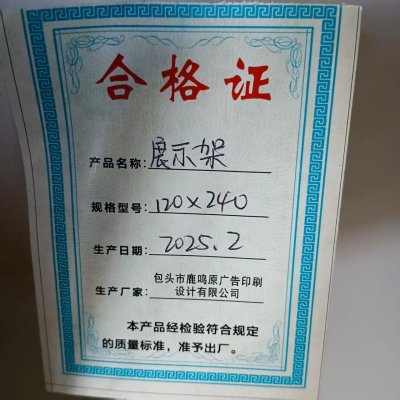 合格证
产品名称：展示架
规格型号：120×240
生产日期：2025.2
生产厂家：包头市鹿鸣原广告印刷
设计有限公司
本产品经检验符合规定
的质量标准，准予出厂。